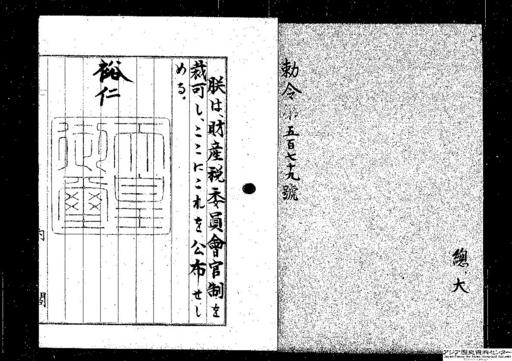 總大
勅令第五百七十九號
朕は、財産税委員會官制を
裁可し、ここにこれを公布せし
める。
裕仁
天皇
御璽
内閣
アジア歴史資料センター
Japan Center for Asian Historical Records